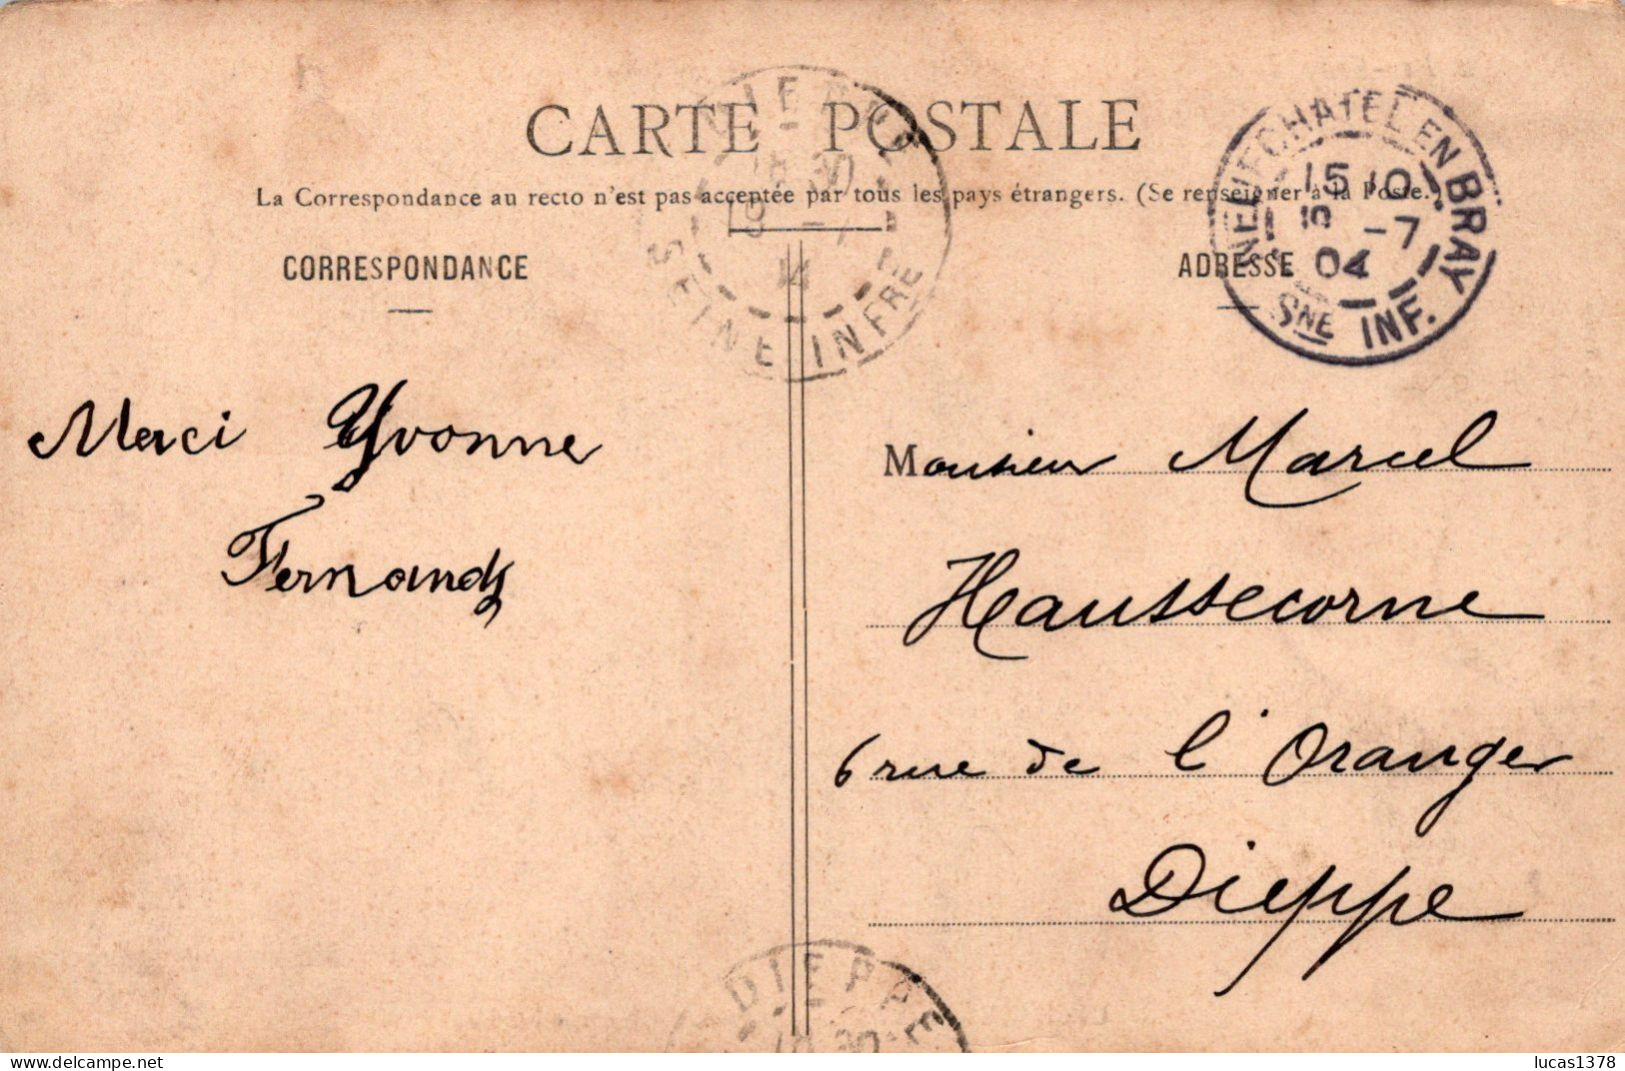 CARTE POSTALE
La Correspondance au recto n'est pas acceptée par tous les pays étrangers. (Se renseigner à la Poste.)
CORRESPONDANCE
ADRESSE
NEUFCHATEL EN BRAY
15 10
-7
04
SNE INF.
DIEPPE
SEINE INFRE
Merci Yvonne
Fernande
Monsieur Marcel
Haussecorne
6 rue de l'Oranger
Dieppe
DIEPPE
delcampe.net
lucas1378